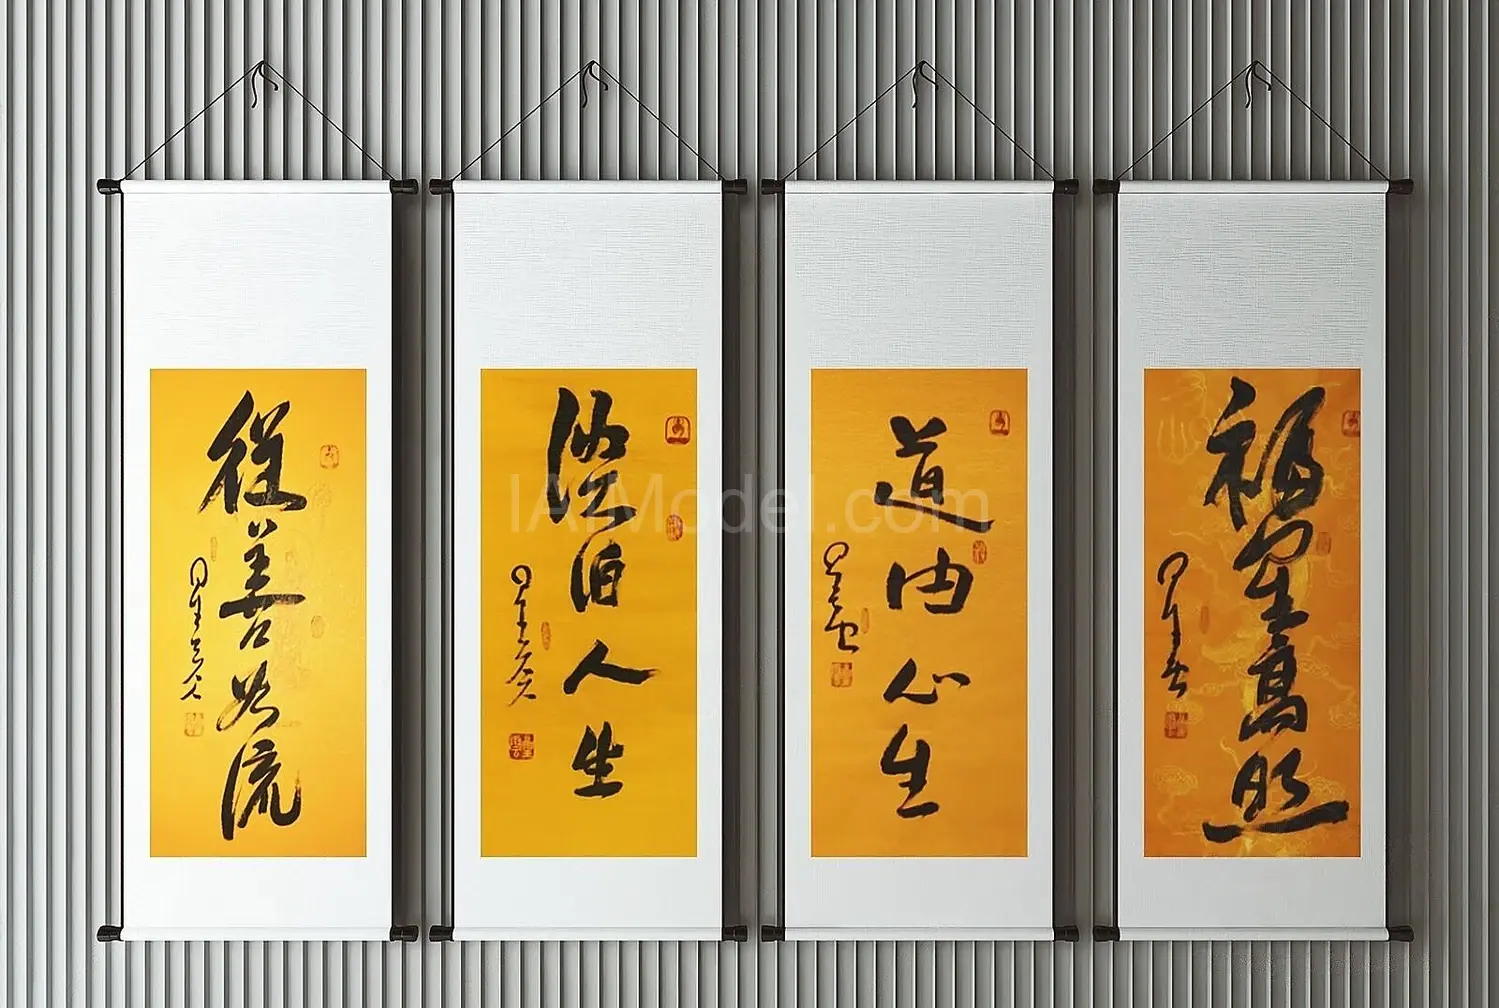 從善如流
澹泊人生
道由心生
福星高照
IAIModel.com